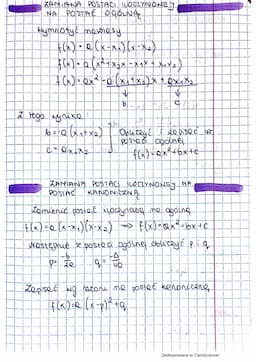 ZAMIANA POSTACI ILOCZYNOWEJ
NA POSTAĆ OGÓLNĄ
Wymnożyć nawiasy
f(x) = a(x-x₁)(x-x₂)
f(x) = a(x²-x₂x-x₁x+x₁x₂)
f(x) = ax²-a(x₁+x₂)x+ax₁x₂
b c
Z tego wynika:
b=-a(x₁+x₂) Obliczyć i zapisać w
c=ax₁x₂ postaci ogólnej
f(x)=ax²+bx+c
ZAMIANA POSTACI ILOCZYNOWEJ NA
POSTAĆ KANONICZNĄ
Zamienić postać iloczynową na ogólną
f(x)=a(x-x₁)(x-x₂) → f(x)=ax²+bx+c
Następnie z postaci ogólnej obliczyć p i q
p=-b/2a q=-Δ/4a
Zapisać wg wzoru na postać kanoniczną
f(x)=a(x-p)²+q
Zeskanowane w CamScanner